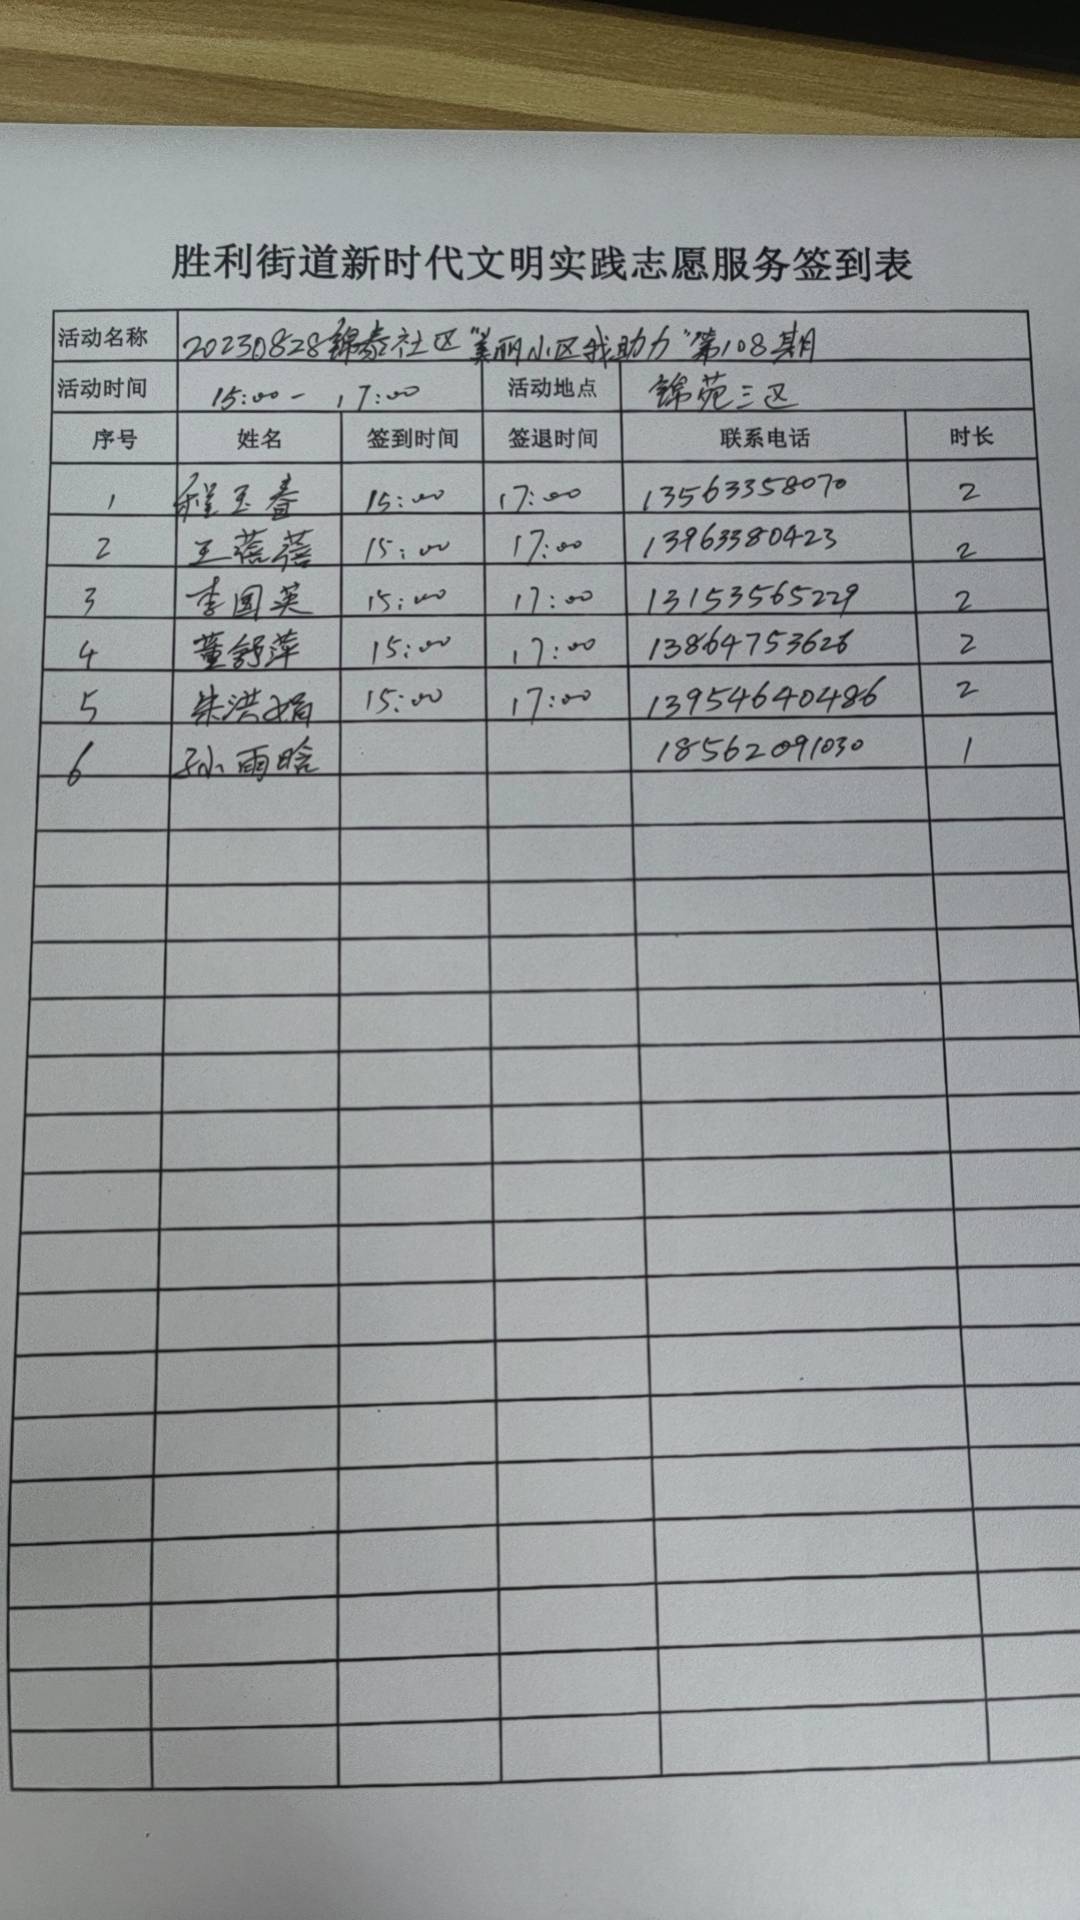 胜利街道新时代文明实践志愿服务签到表
活动名称 20230828锦泰社区"美丽小区我助力"第108期
活动时间 15:00- 17:00 活动地点 锦苑三区
序号 姓名 签到时间 签退时间 联系电话 时长
1 程玉春 15:00 17:00 13563358070 2
2 王蓓蓓 15:00 17:00 13963380423 2
3 李国英 15:00 17:00 13153565229 2
4 董舒萍 15:00 17:00 13864753626 2
5 朱洪娟 15:00 17:00 13954640486 2
6 孙雨晗 18562091030 1